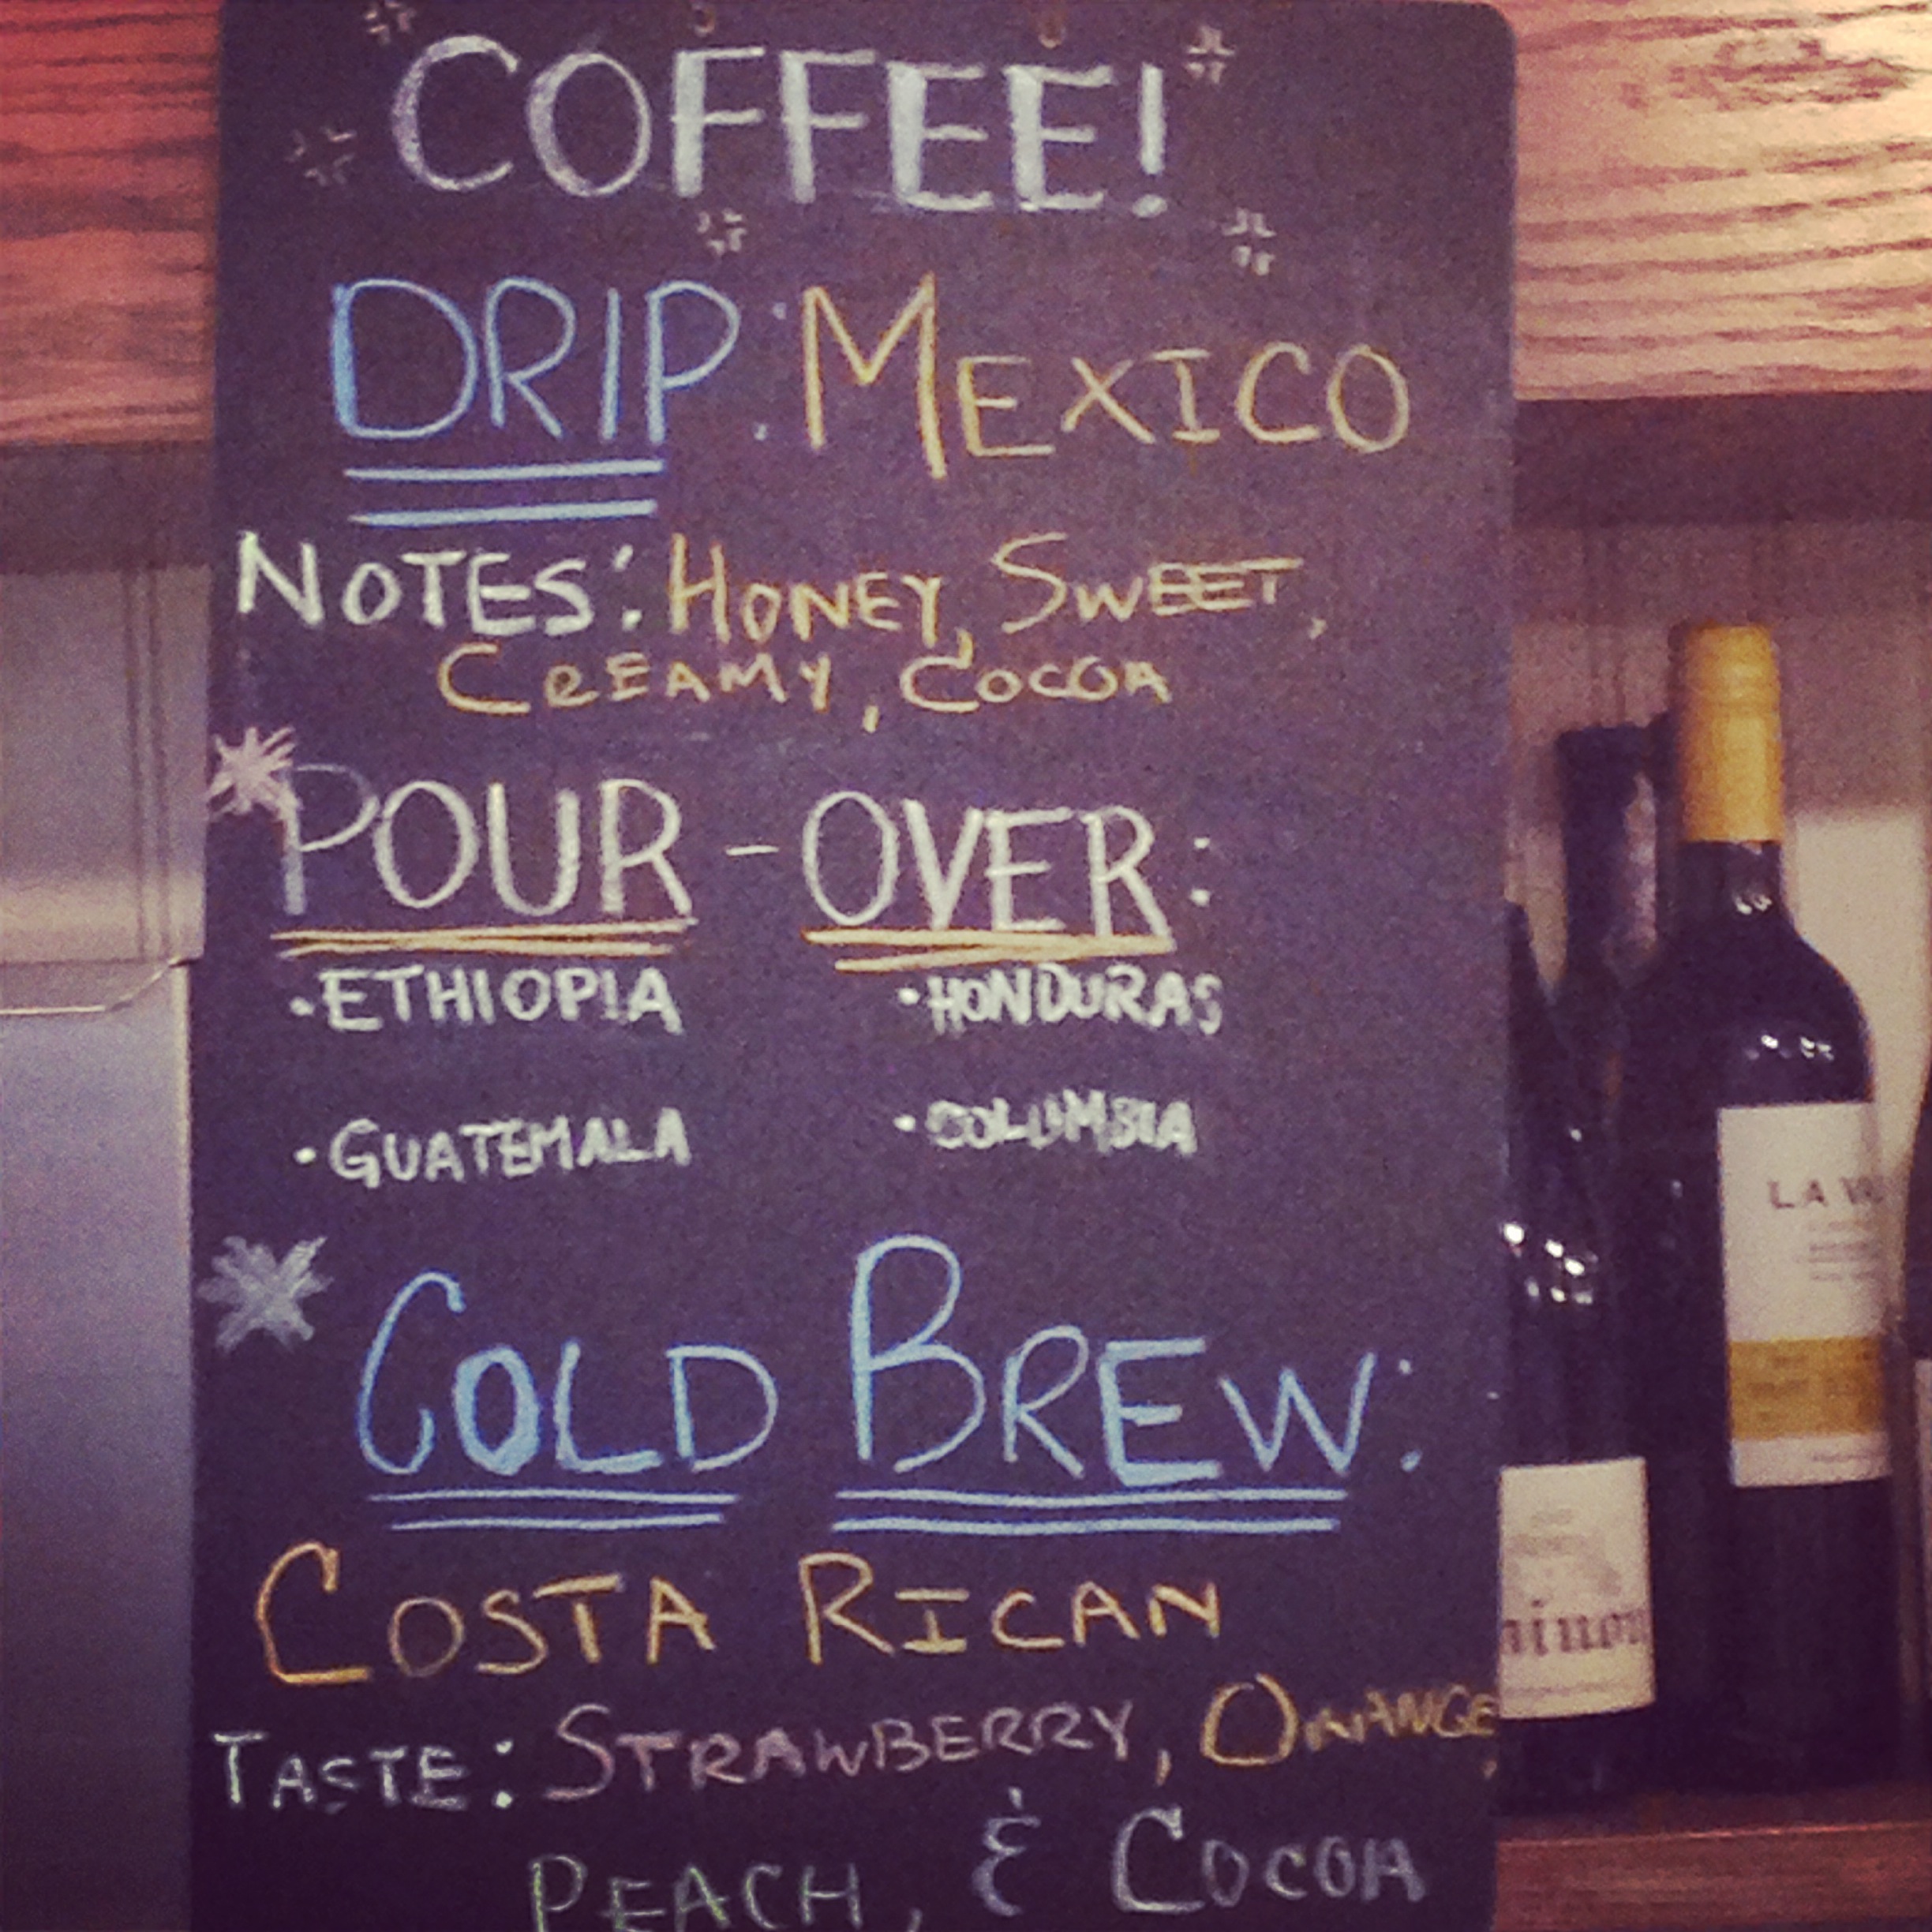 COFFEE!
DRIP: MEXICO
NOTES: HONEY, SWEET,
CREAMY, COCOA
POUR-OVER:
• ETHIOPIA • HONDURAS
• GUATEMALA • COLUMBIA
COLD BREW:
COSTA RICAN
TASTE: STRAWBERRY, ORANGE,
PEACH, & COCOA
LA